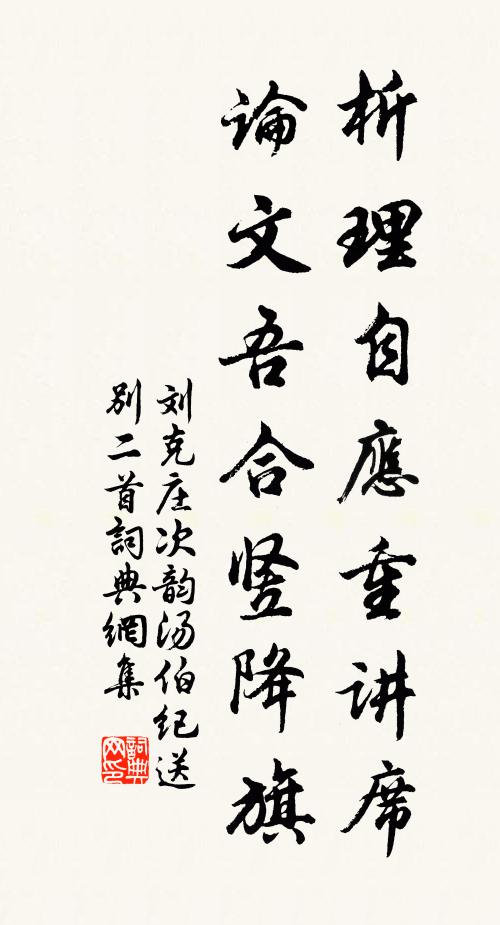 析理自應重讲席
論文吾合竖降旗
刘克庄次韵汤伯纪送
别二首詞典網集
詞典
网印